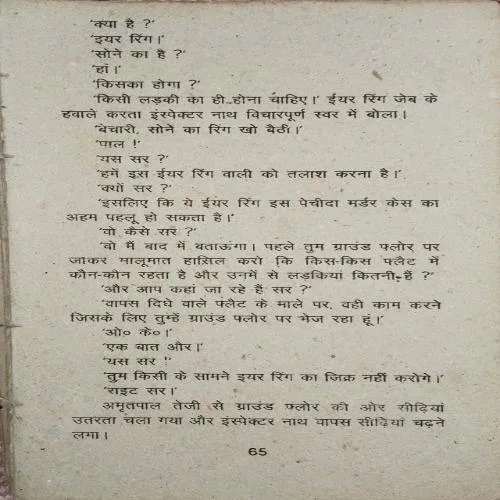 'क्या है ?'
'इयर रिंग।'
'सोने का है ?'
'हां।'
'किसका होगा ?'
'किसी लड़की का ही होना चाहिए।' ईयर रिंग जेब के
हवाले करता इंस्पेक्टर नाथ विचारपूर्ण स्वर में बोला।
'बेचारी, सोने का रिंग खो बैठी।'
'पाल !'
'यस सर ?'
'हमें इस ईयर रिंग वाली को तलाश करना है।'
'क्यों सर ?'
'इसलिए कि ये ईयर रिंग इस पेचीदा मर्डर केस का
अहम पहलू हो सकता है।'
'वो कैसे सर ?'
'वो मैं बाद में बताऊंगा। पहले तुम ग्राउंड फ्लोर पर
जाकर मालूमात हासिल करो कि किस-किस फ्लैट में
कौन-कौन रहता है और उनमें से लड़कियां कितनी हैं ?'
'और आप कहां जा रहे हैं सर ?'
'वापस दिघे वाले फ्लैट के माले पर, वही काम करने
जिसके लिए तुम्हें ग्राउंड फ्लोर पर भेज रहा हूं।'
'ओ० के०।'
'एक बात और।'
'यस सर !'
'तुम किसी के सामने इयर रिंग का जिक्र नहीं करोगे।'
'राइट सर।'
अमृतपाल तेजी से ग्राउंड फ्लोर की ओर सीढ़ियां
उतरता चला गया और इंस्पेक्टर नाथ वापस सीढ़ियां चढ़ने
लगा।
65